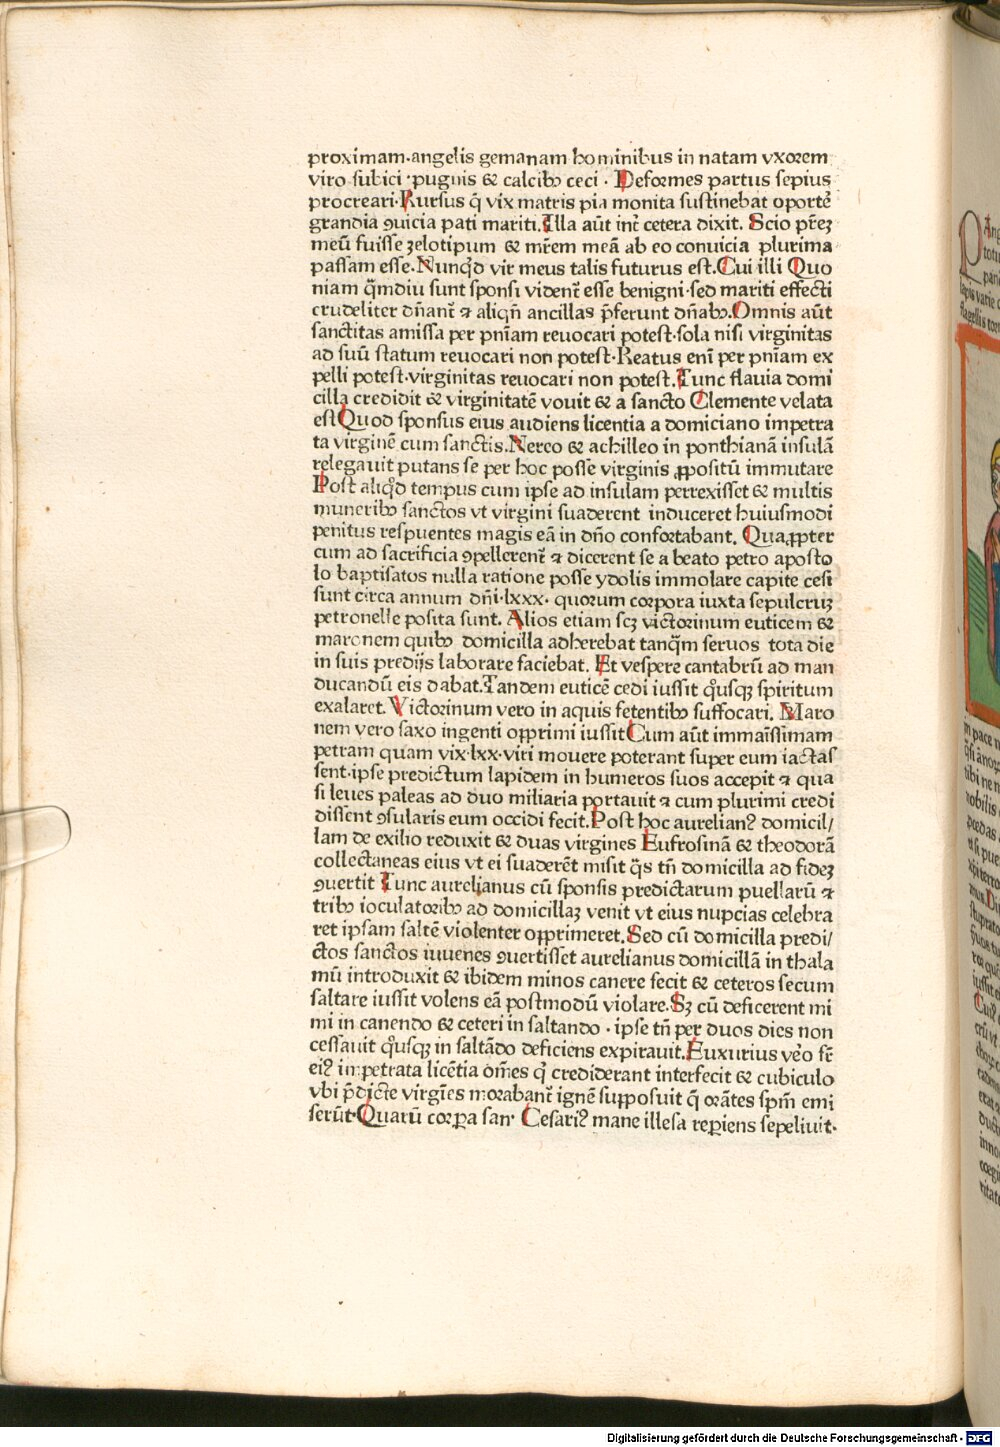 proximam·angelis gemanam hominibus in natam vxorem
viro subici·pugnis & calcibꝫ ceci· Deformes partus sepius
procreari·Rursus q̄ vix matris pia monita sustinebat oporteꝫ
grandia ꝯuicia pati mariti.Illa aūt int̄ cetera dixit. Scio p̄reꝫ
meū fuisse zelotipum & mr̄em meā ab eo conuicia plurima
passam esse·Nunqͥd vir meus talis futurus est.Cui illi Quo
niam q̄mdiu sunt sponsi vident̄ esse benigni·sed mariti effecti
crudeliter dn̄ant̄ ⁊ aliqn̄ ancillas p̄ferunt dn̄abꝫ.Omnis aūt
sanctitas amissa per pn̄iam reuocari potest·sola nisi virginitas
ad suū statum reuocari non potest·Reatus eni per pn̄iam ex
pelli potest·virginitas reuocari non potest.Tunc flauia domi
cilla credidit & virginitatē vouit & a sancto Clemente velata
est Quod sponsus eius audiens licentia a domiciano impetra
ta virginē cum sanctis.Nereo & achilleo in ponthianā insulā
relegauit putans se per hoc posse virginis ꝓpositū immutare
Post aliqͥd tempus cum ipse ad insulam perrexisset & multis
muneribꝫ sanctos vt virgini suaderent induceret huiusmodi
penitus respuentes magis eā in dn̄o confortabant. Quaꝓpter
cum ad sacrificia ꝯpellerent̄ ⁊ dicerent se a beato petro aposto
lo baptisatos nulla ratione posse ydolis immolare capite cesi
sunt circa annum dn̄i·lxxx· quorum corpora iuxta sepulcruꝫ
petronelle posita sunt. Alios etiam scꝫ victorinum euticem &
maronem quibꝫ domicilla adherebat tanq̄m seruos tota die
in suis predijs laborare faciebat. Et vespere cantabrū ad man
ducandū eis dabat.Tandem euticē cedi iussit qͦusqꝫ spiritum
exalaret.Victorinum vero in aquis fetentibꝫ suffocari. Maro
nem vero saxo ingenti opprimi iussit Cum aūt immaīssimam
petram quam vix·lxx·viri mouere poterant super eum iactas
sent·ipse predictum lapidem in humeros suos accepit ⁊ qua
si leues paleas ad duo miliaria portauit ⁊ cum plurimi credi
dissent ꝯsularis eum occidi fecit.Post hoc aurelianꝰ domicil/
lam de exilio reduxit & duas virgines Eufrosinā & theodorā
collectaneas eius vt ei suaderēt misit q̄s tn̄ domicilla ad fideꝫ
ꝯuertit Tunc aurelianus cū sponsis predictarum puellarū ⁊
tribꝫ ioculatoribꝫ ad domicillaꝫ venit vt eius nupcias celebra
ret ipsam saltē violenter opprimeret.Sed cū domicilla predi/
ctos sanctos iuuenes ꝯuertisset aurelianus domicillā in thala
mū introduxit & ibidem minos canere fecit & ceteros secum
saltare iussit volens eā postmodū violare.Sꝫ cū deficerent mi
mi in canendo & ceteri in saltando·ipse tn̄ per duos dies non
cessauit qͦusqꝫ in saltādo deficiens expirauit.Euxurius veͦo fr̄
eiꝰ impetrata licētia om̄es q̄ crediderant interfecit & cubiculo
vbi p̄dicte virgīes morabant̄ ignē supposuit q̄ orātes spm̄ emi
serūt·Quarū corꝑa san· Cesariꝰ mane illesa reꝑiens sepeliuit·
Digitalisierung gefördert durch die Deutsche Forschungsgemeinschaft - DFG